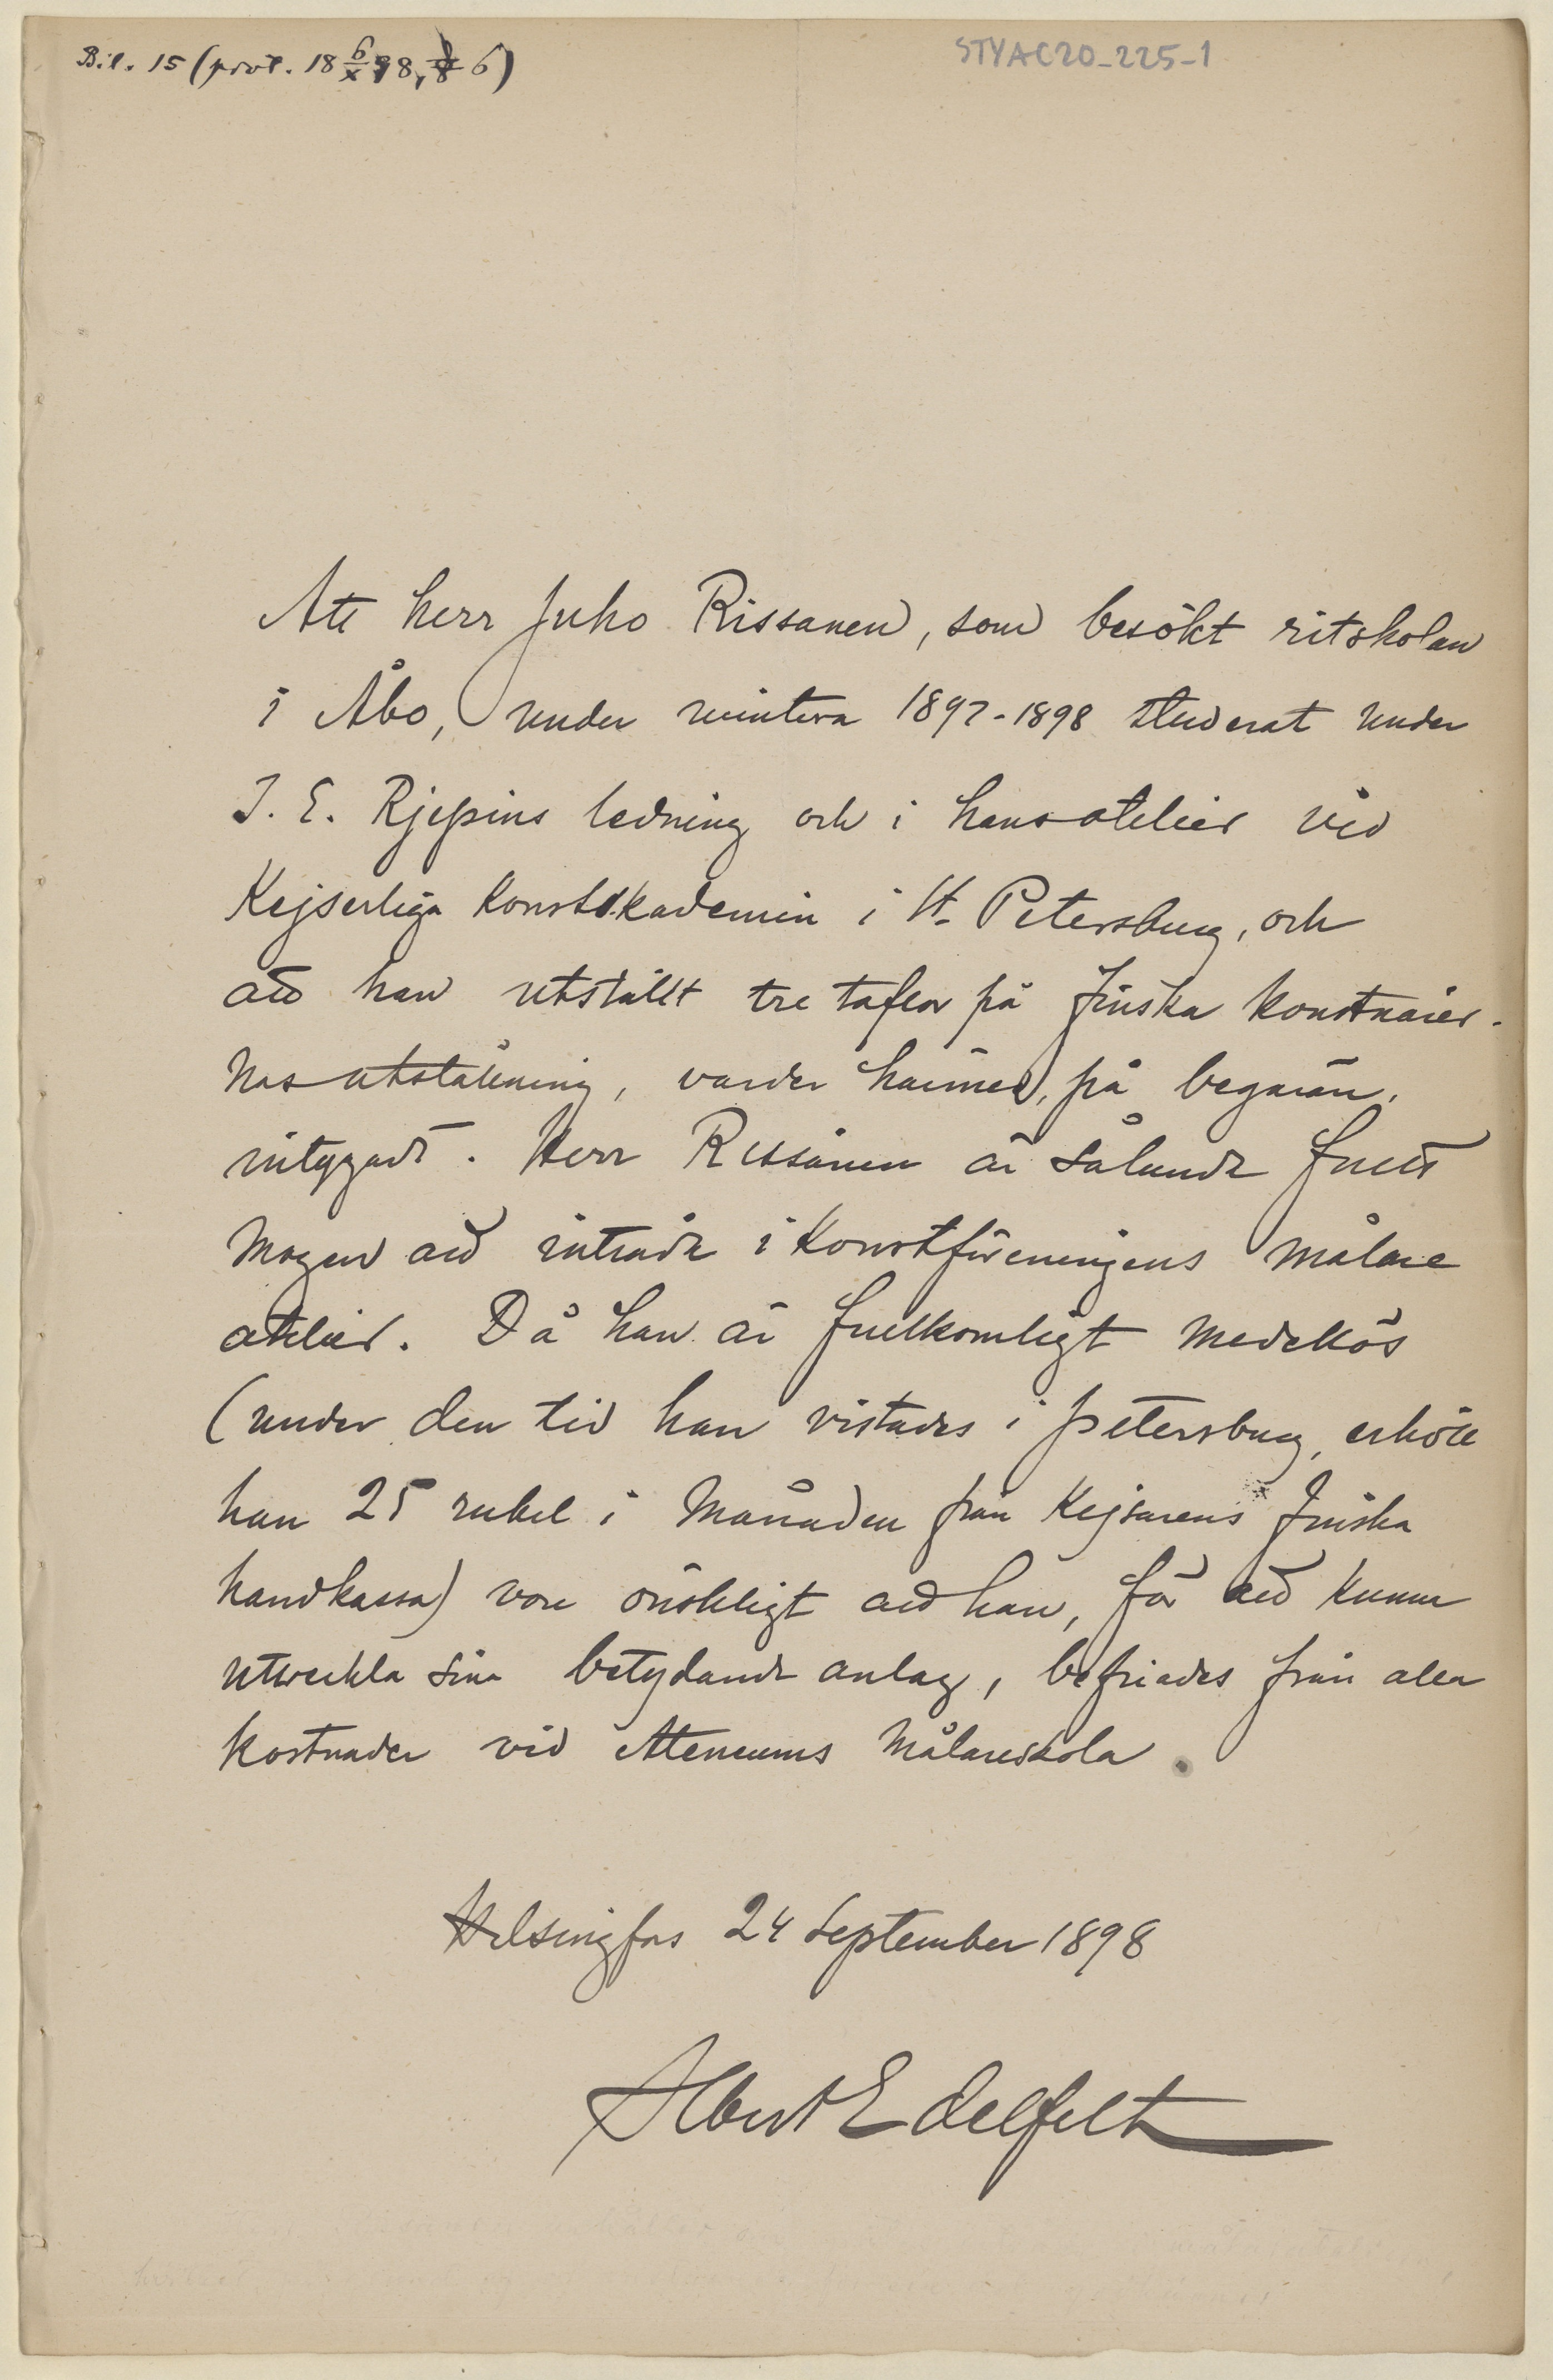 Bil. 15 (prot. 18 6/X 98, § 6)
STYAC20_225-1
Att herr Juho Rissanen, som besökt ritskolan
i Åbo, under vintern 1897-1898 studerat under
I. E. Rjepins ledning och i hans atelier vid
Kejserliga Konstakademin i St. Petersburg, och
att han utställt tre taflor på Finska Konstnärer-
nas utställning, varder härmed, på begäran,
intygadt. Herr Rissanen är sålunda fullt
mogen att inträda i Konstföreningens målare
atelier. Då han är fullkomligt medellös
(under den tid han vistades i Petersburg, erhöll
han 25 rubel i månaden från Kejsarens Finska
handkassa) vore önskligt att han, för att kunna
utveckla sina betydande anlag, befriades från alla
kostnader vid Ateneums Målareskola.
Helsingfors 24 September 1898
Albert Edelfelt